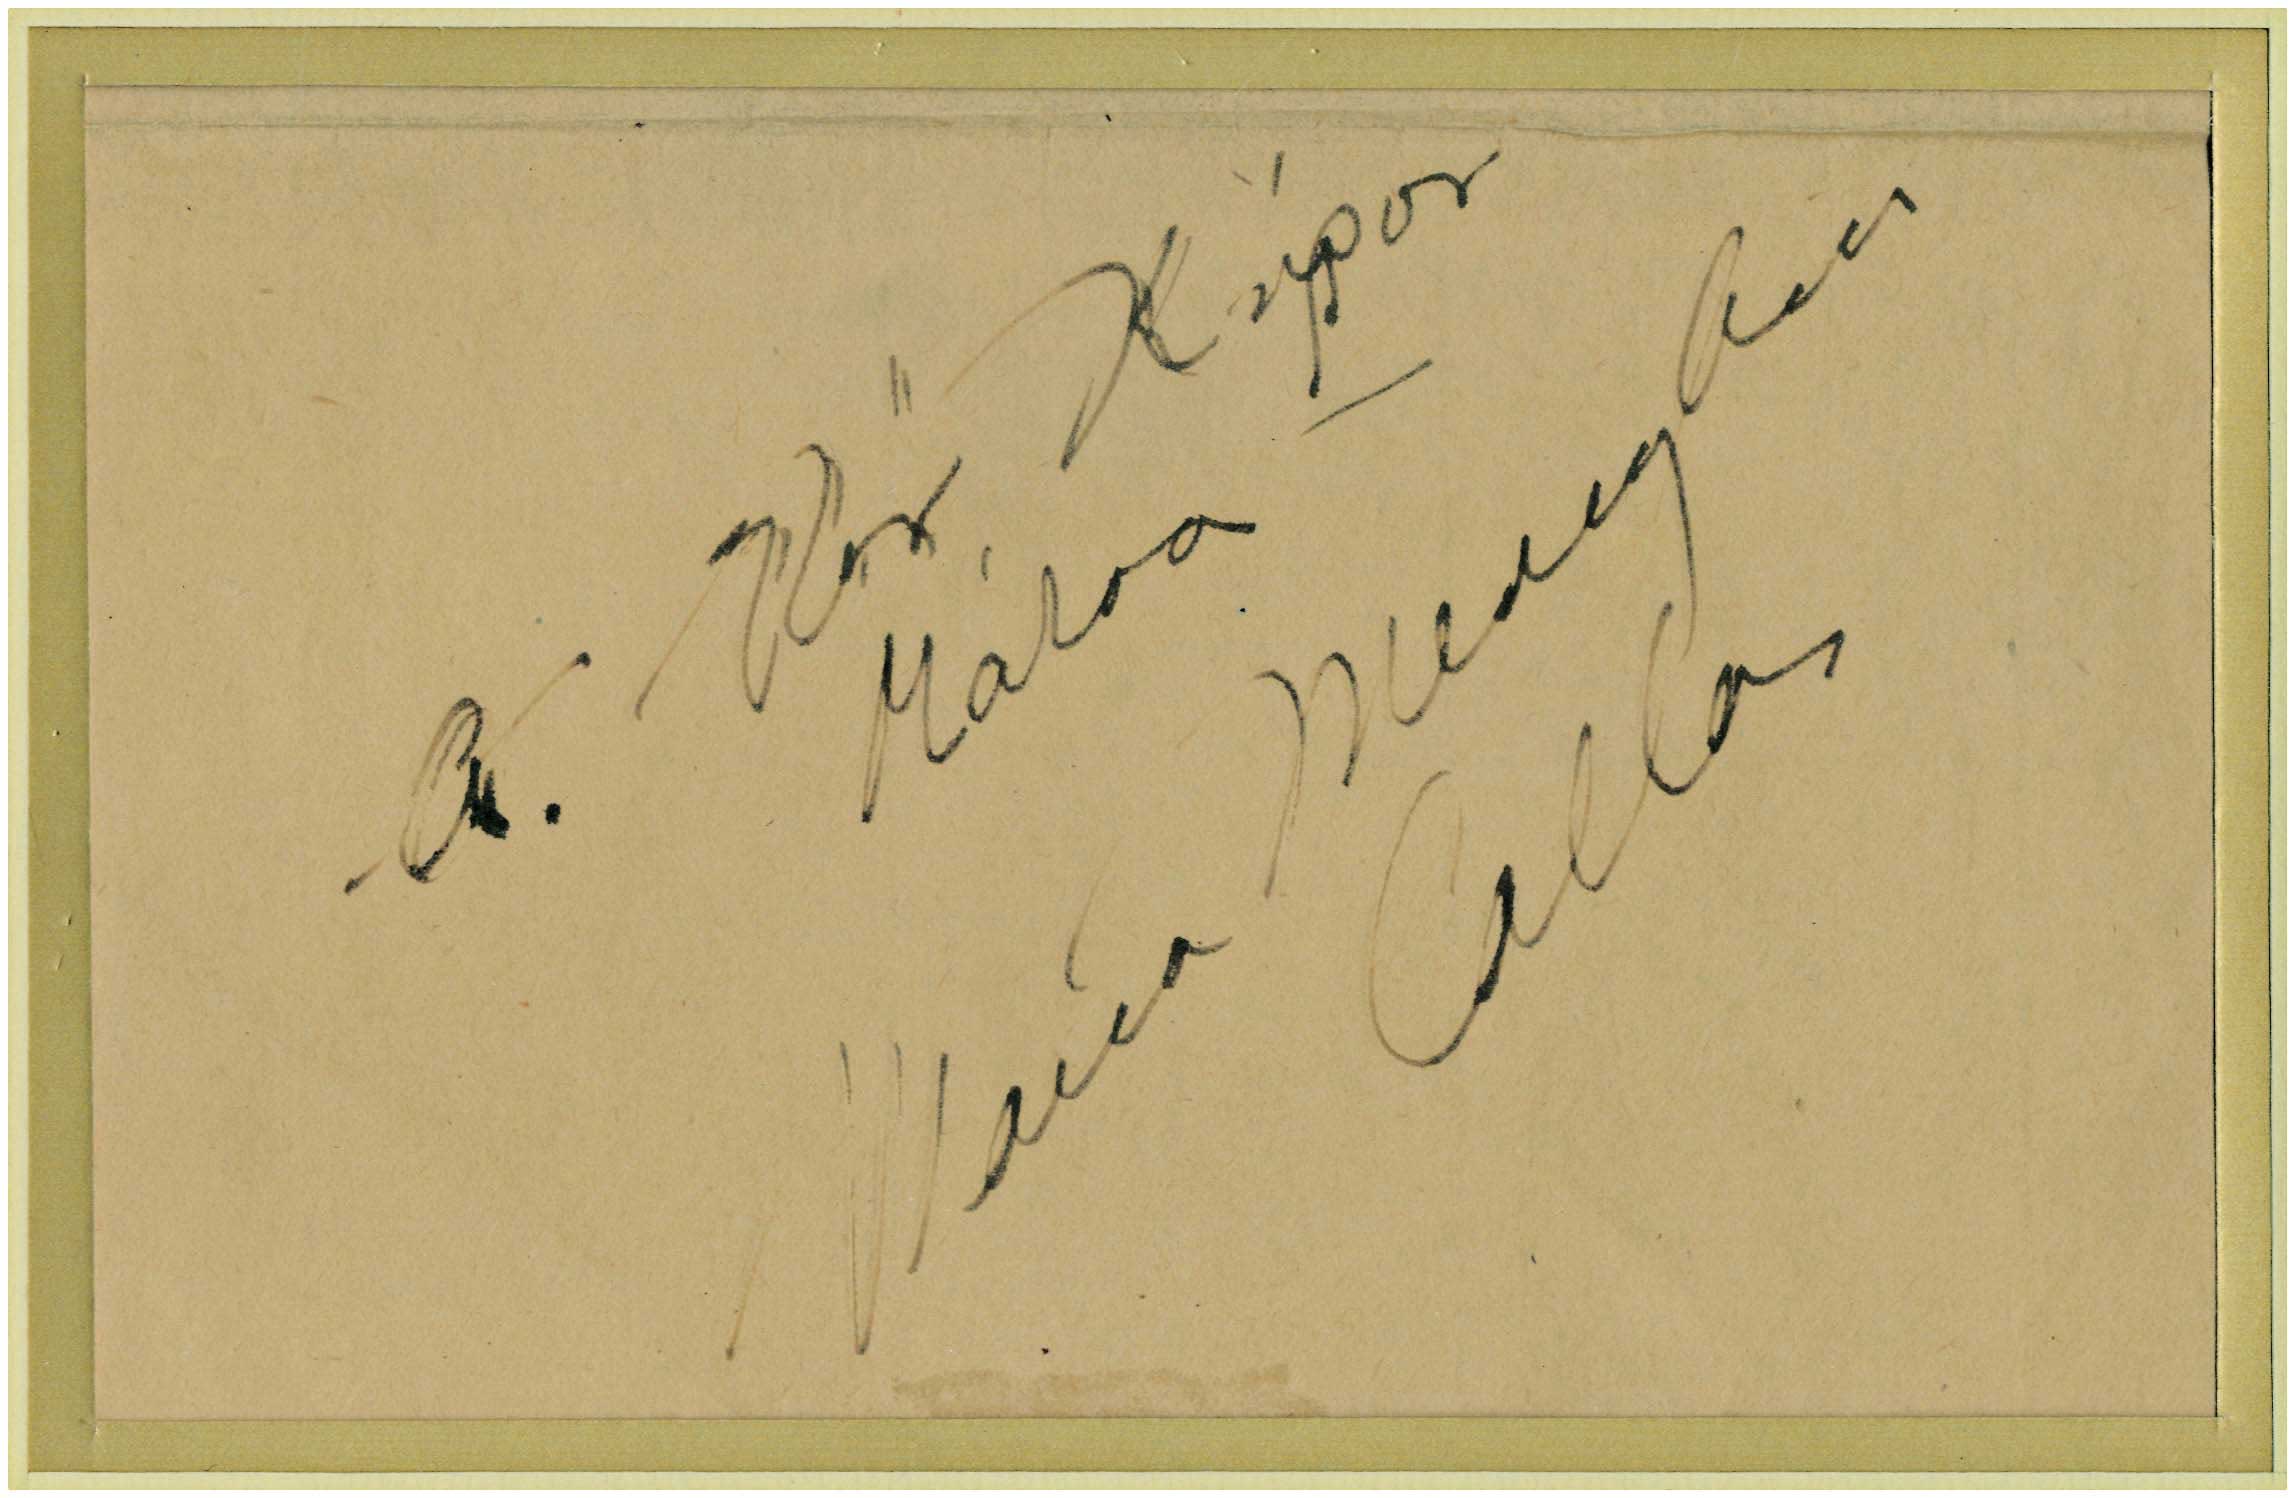 Κον Κύρον
Μάτσα
Maria Meneghini
Callas